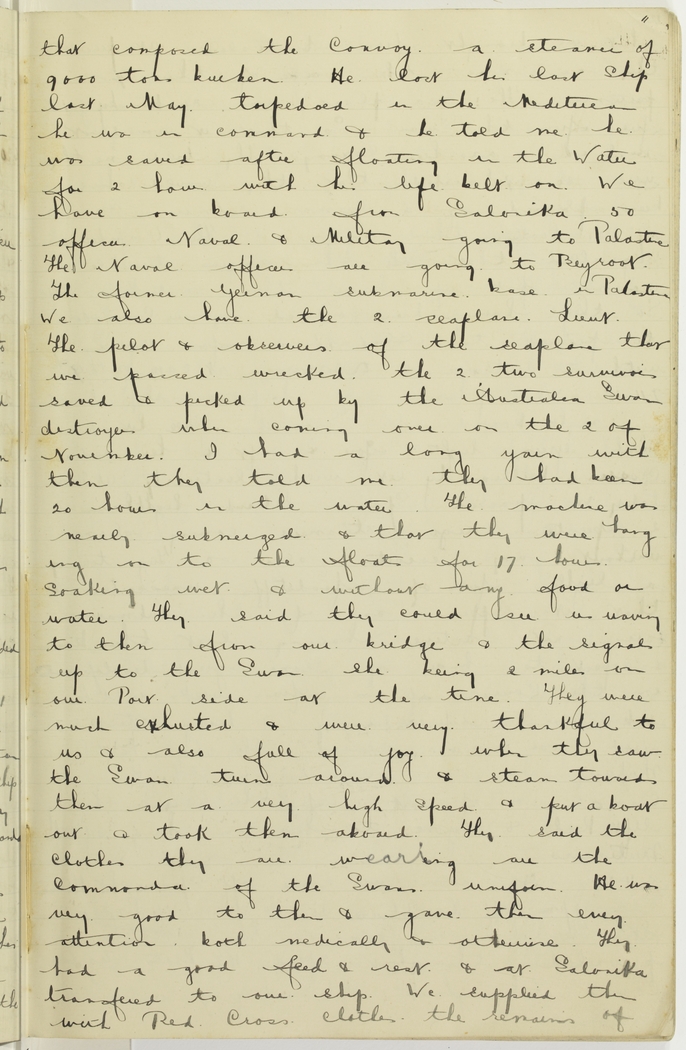 "
that composed the Convoy. a steamer of
9000 tons burben. He lost his last ship
last May. torpedoed in the Mediterean
he was in command & he told me he.
was saved after floating in the Water
for 2 hours with his life belt on. We
have on board from Salonika. 50
officers Naval. & Military going to Palastine
The Naval officers are going to Beyroot.
The former German submarine. base in Palastine
We also have the 2. seaplane. Lieut.
The pilot & observers of the seaplane that
we passed wrecked. the 2 two survivors
saved & picked up by the Australian Swan
destroyer when coming over on the 2 of
November. I had a long yarn with
them they told me they had been
20 hours in the water. The machine was
nearly submerged & that they were hang
ing on to the floats for 17 hours.
Soaking wet & without any food or
water. They said they could see us waving
to them from our bridge & the signals
up to the Swan she being 2 miles on
our Port side at the time. They were
much exhusted & were very thankful to
us & also full of joy. when they saw
the Swan turn around & steam towards
them at a very high speed & put a boat
out & took them aboard. They said the
clothes they are wearing are the
Commander of the Swans. uniform. He was
very good to them & gave them every
attention. both medically & otherwise. They
had a good feed & rest. & at Salonika
transfered to our ship. We supplied them
with Red. Cross clothes the remains of